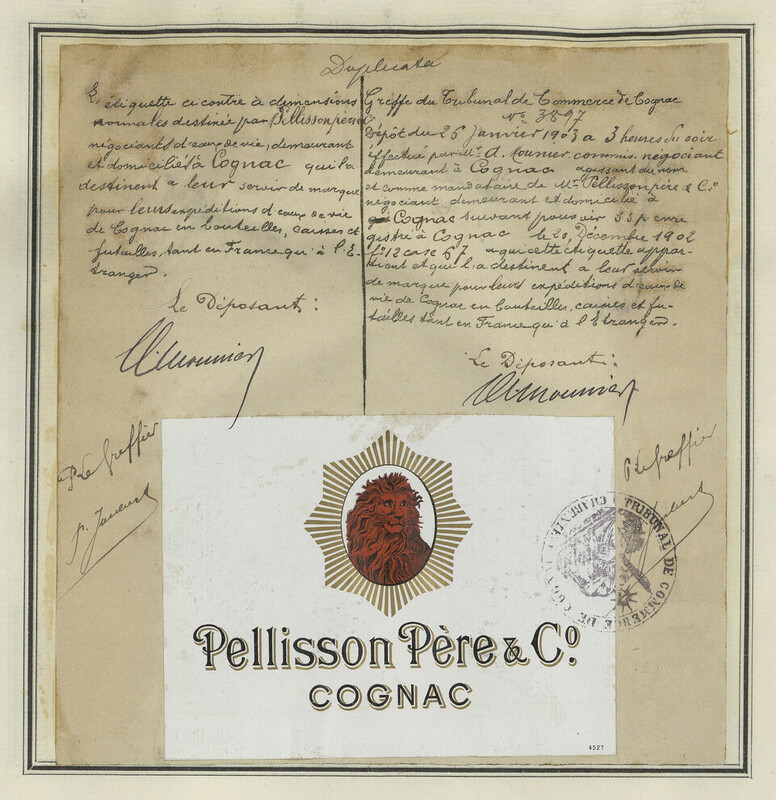 Duplicata
L'étiquette ci contre à dimensions
normales destinée par Pellisson père
négociants d'eaux de vie, demeurant
et domiciliés à Cognac qui la
destinent a leur servir de marque
pour leurs expéditions d'eaux de vie
de Cognac en bouteilles, caisses et
futailles, tant en France qu'à l'É-
tranger.
Le Déposant :
A. Mounier
P. Le Greffier
Greffe du Tribunal de Commerce de Cognac
N° 3897
Dépôt du 26 Janvier 1903 a 3 heures du soir
éffectué par Mr. A. Mounier commis négociant
demeurant à Cognac agissant au nom
et comme mandataire de Mrs Pellisson père & Co
négociant demeurant et domicilié à
Cognac suivant pouvoir S.S.p. enre
gistré à Cognac le 20, Décembre 1902
fo. 12 case 67 a qui cette étiquette appar-
tient et qui la destinent a leur servir
de marque pour leurs expéditions d'eaux de
vie de Cognac en bouteilles, caisses et fu-
tailles tant en France qu'à l'Etranger.
Le Déposant :
A. Mounier
P. Le Greffier
TRIBUNAL DE COMMERCE DE COGNAC
Pellisson Père & Co.
COGNAC
4527